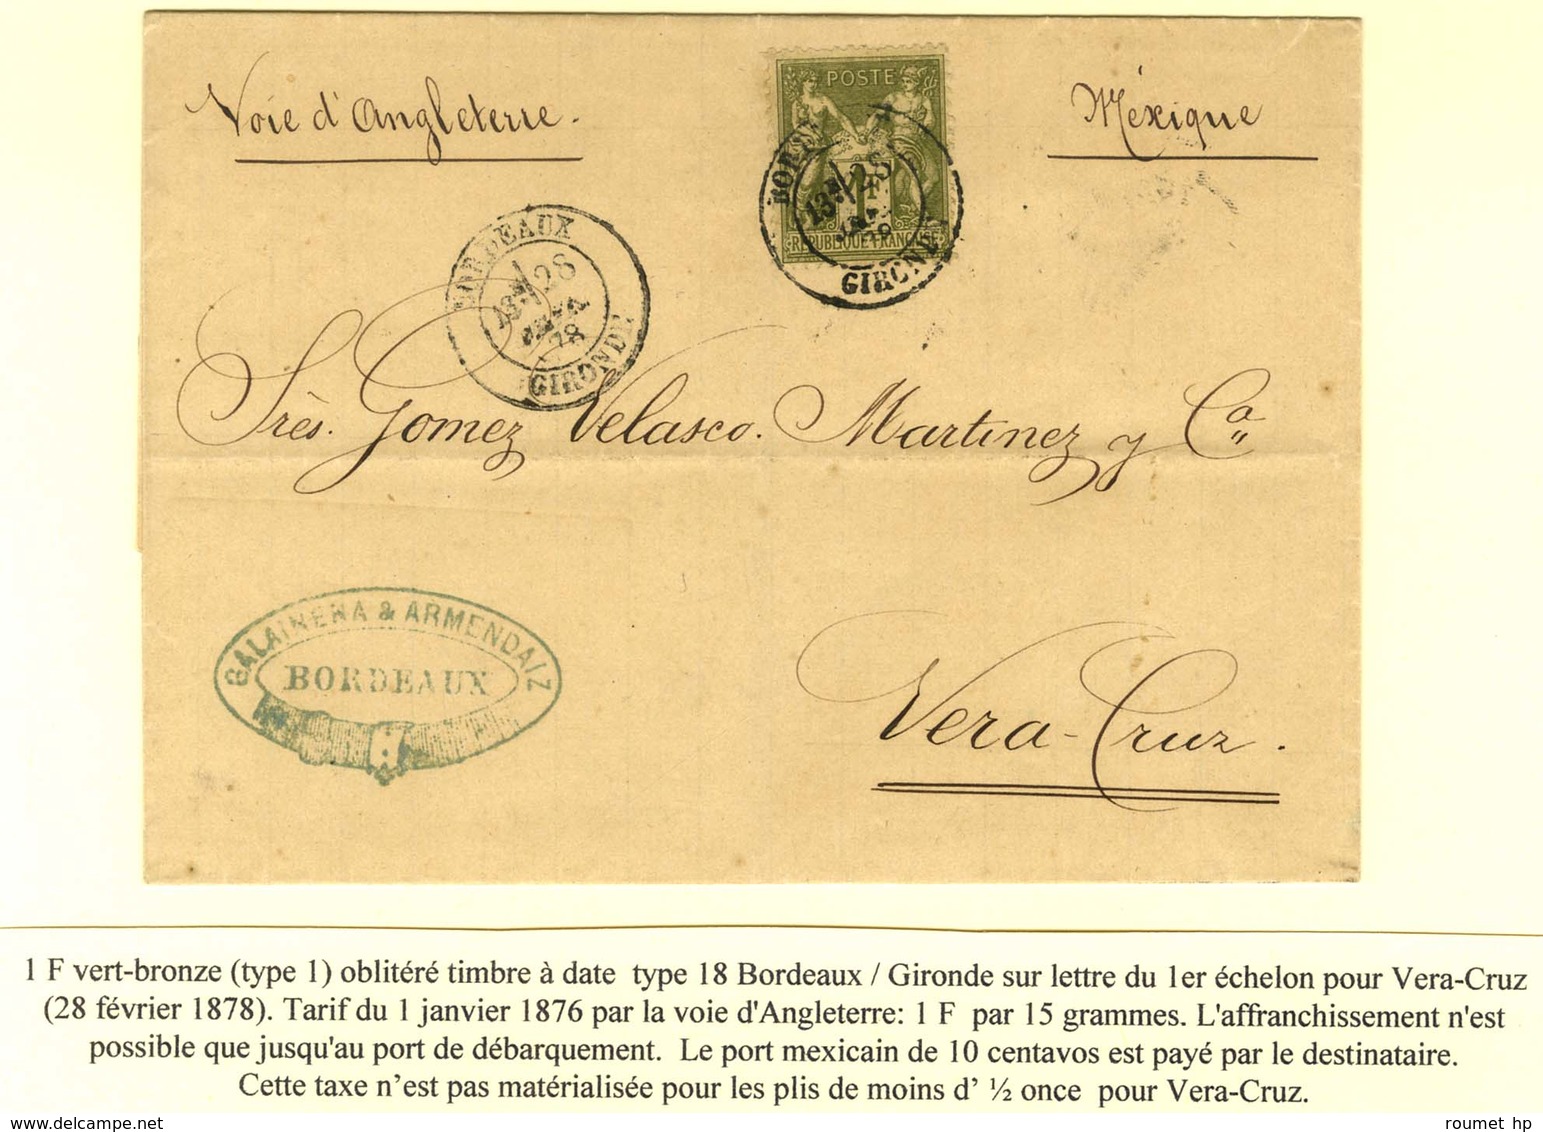 Voie d'Angleterre.
Méxique
POSTE
1F
REPUBLIQUE FRANÇAISE
GIRONDE
28
BORDEAUX
28
78
GIRONDE
Srès. Gomez Velasco. Martinez y Ca
GALAINENA & ARMENDAIZ
BORDEAUX
Vera-Cruz.
1 F vert-bronze (type 1) oblitéré timbre à date type 18 Bordeaux / Gironde sur lettre du 1er échelon pour Vera-Cruz
(28 février 1878). Tarif du 1 janvier 1876 par la voie d'Angleterre: 1 F par 15 grammes. L'affranchissement n'est
possible que jusqu'au port de débarquement. Le port mexicain de 10 centavos est payé par le destinataire.
Cette taxe n'est pas matérialisée pour les plis de moins d' ½ once pour Vera-Cruz.
roumet hp